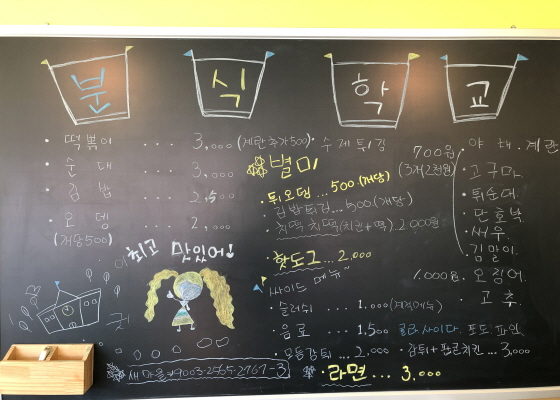 분 식 학 교
• 떡볶이 ... 3,000 (계란추가500)
• 순대 ... 3,000
• 김밥 ... 2,500
• 오뎅 ... 2,000
(개당500)
최고 맛있어!
새마을 9003-2565-2767-3
별미
• 튀오뎅 ... 500 (개당)
• 김밥튀김 ... 500 (개당)
• 치떡치떡 (치킨+떡) 2,000원
• 핫도그 ... 2,000
싸이드 메뉴~
• 슬러쉬 ... 1,000 (계절메뉴)
• 음료 ... 1,500 콜라.사이다. 포도.파인
• 모듬감튀 ... 2,000 • 감튀+팝콘치킨 ... 3,000
• 라면 ... 3,000
• 수제튀김
700원
(3개2천원)
• 야채.계란
• 고구마.
• 튀순대.
• 단호박.
• 새우.
• 김말이.
1,000원 • 오징어.
• 고추.